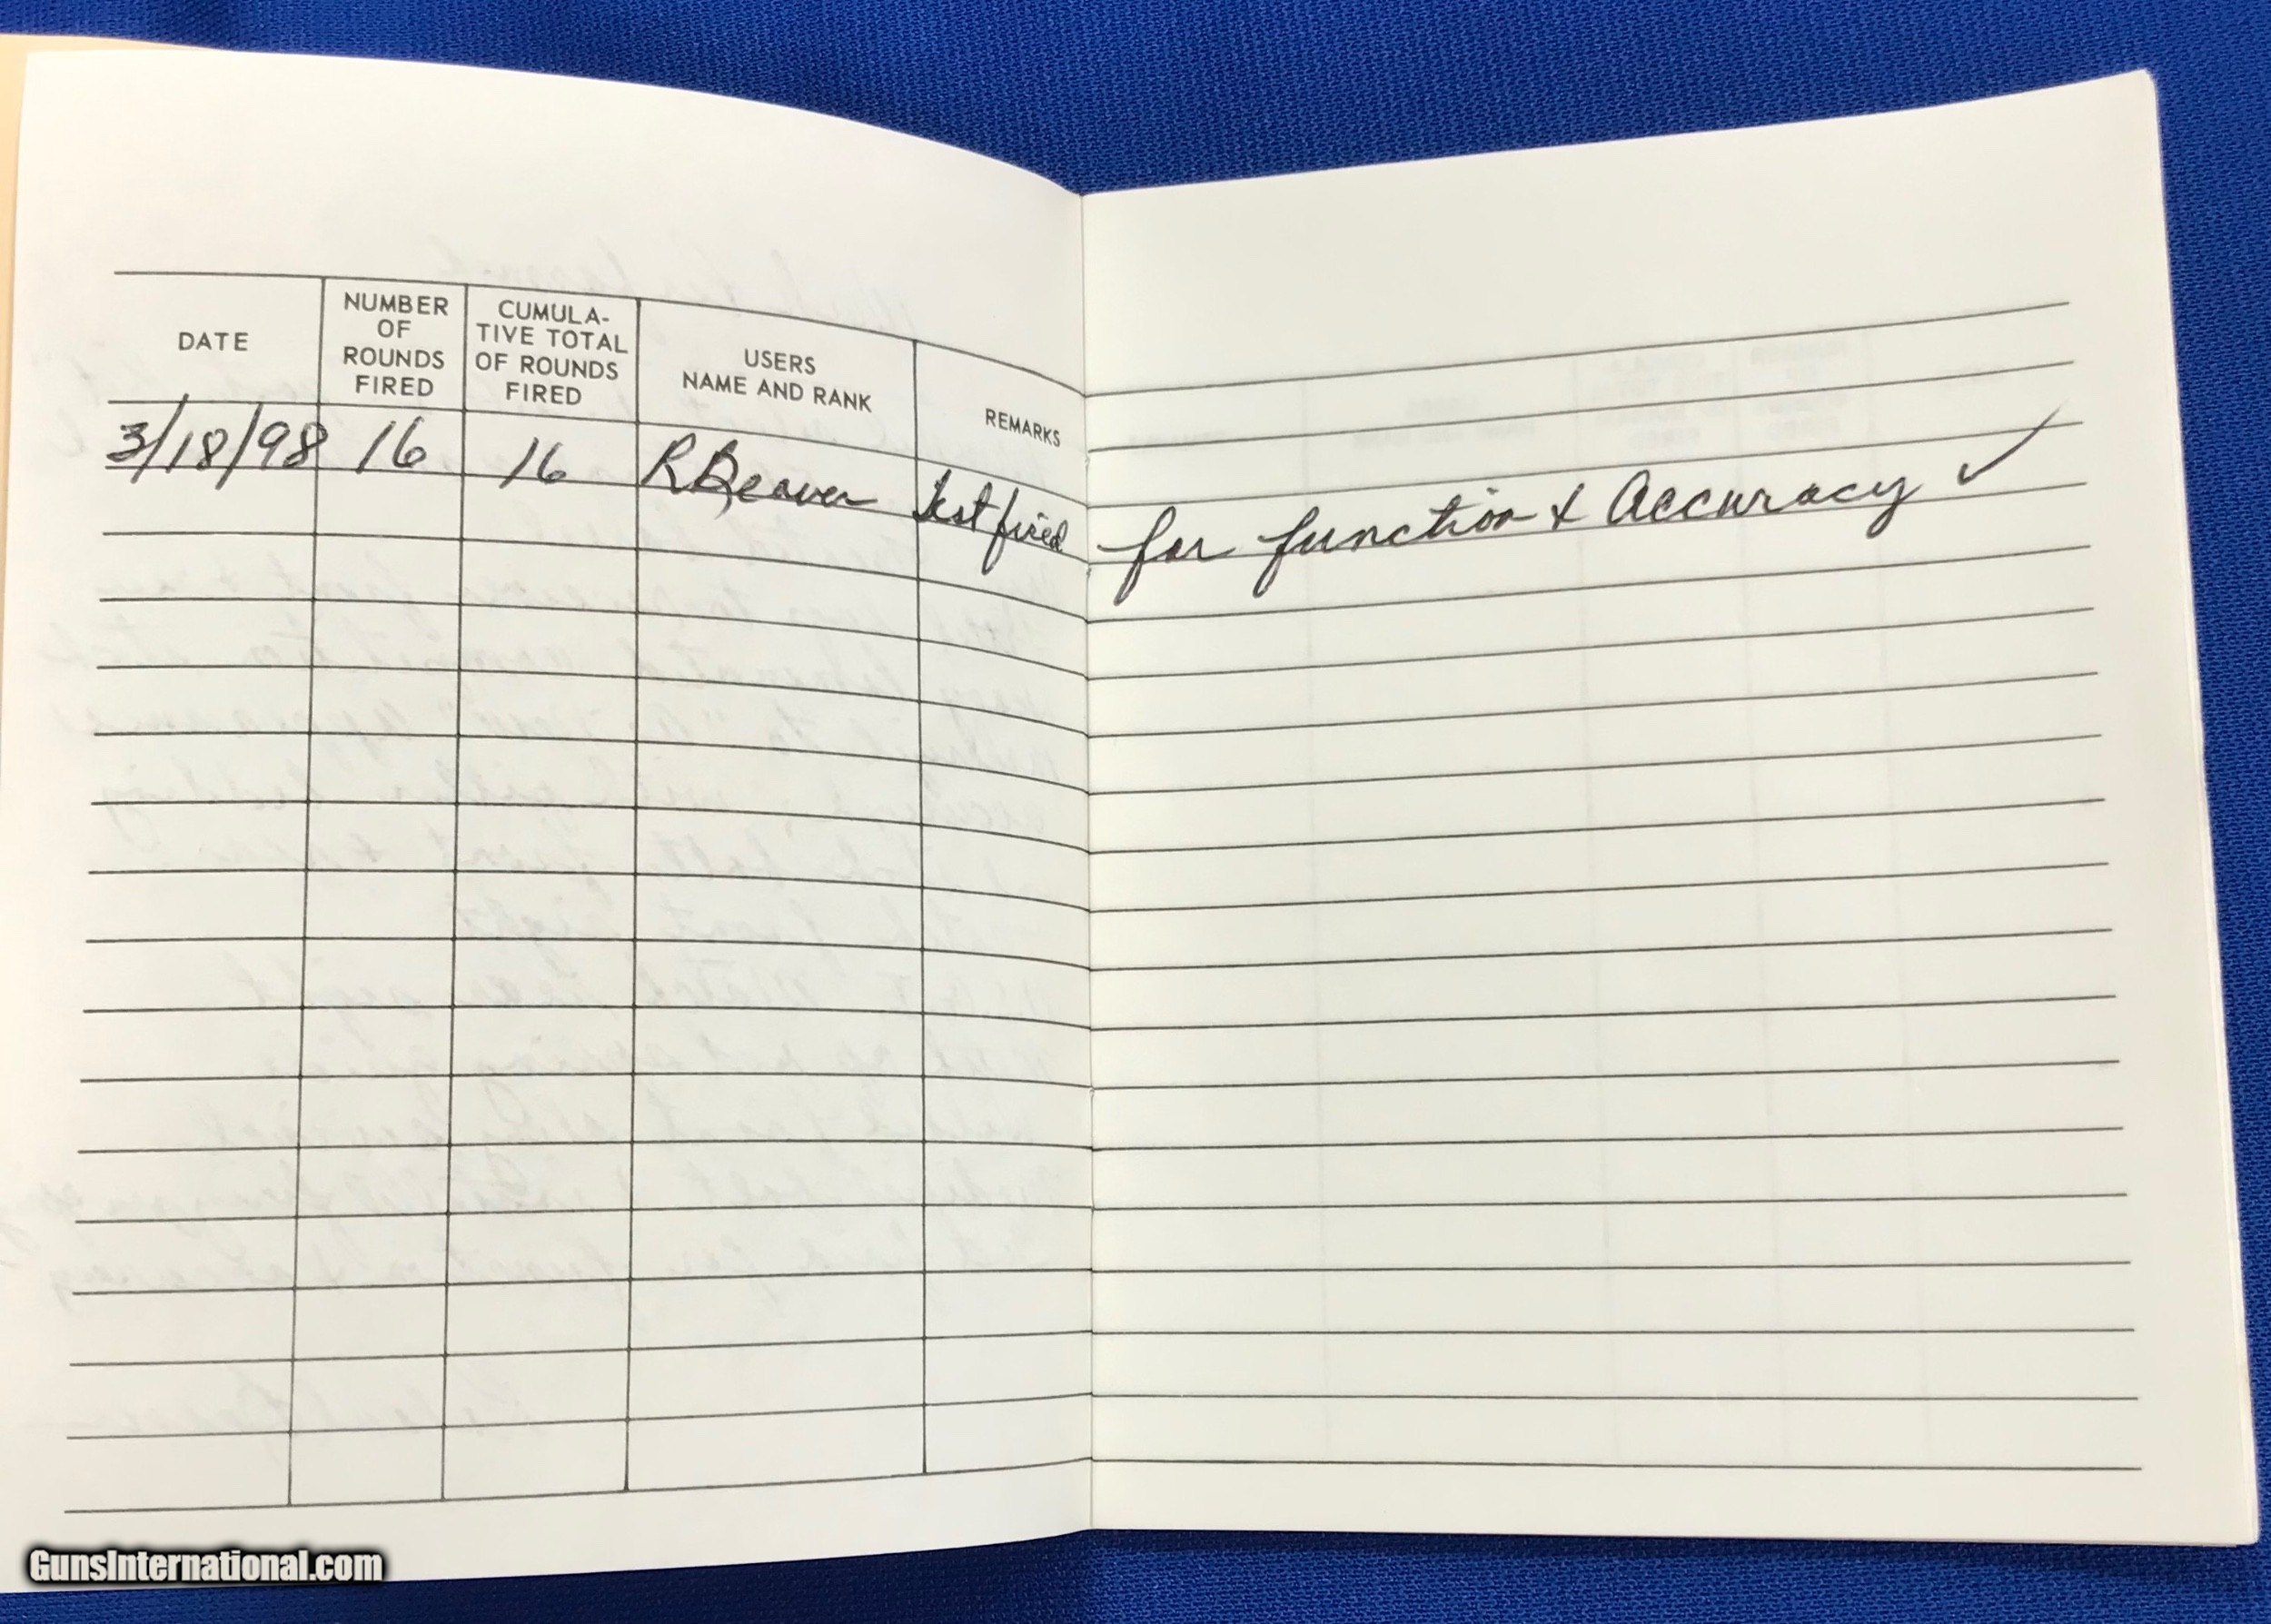 DATE
NUMBER
OF
ROUNDS
FIRED
CUMULA-
TIVE TOTAL
OF ROUNDS
FIRED
USERS
NAME AND RANK
REMARKS
3/18/98 16 16 R Beaver Test fired for function & Accuracy ✓
GunsInternational.com